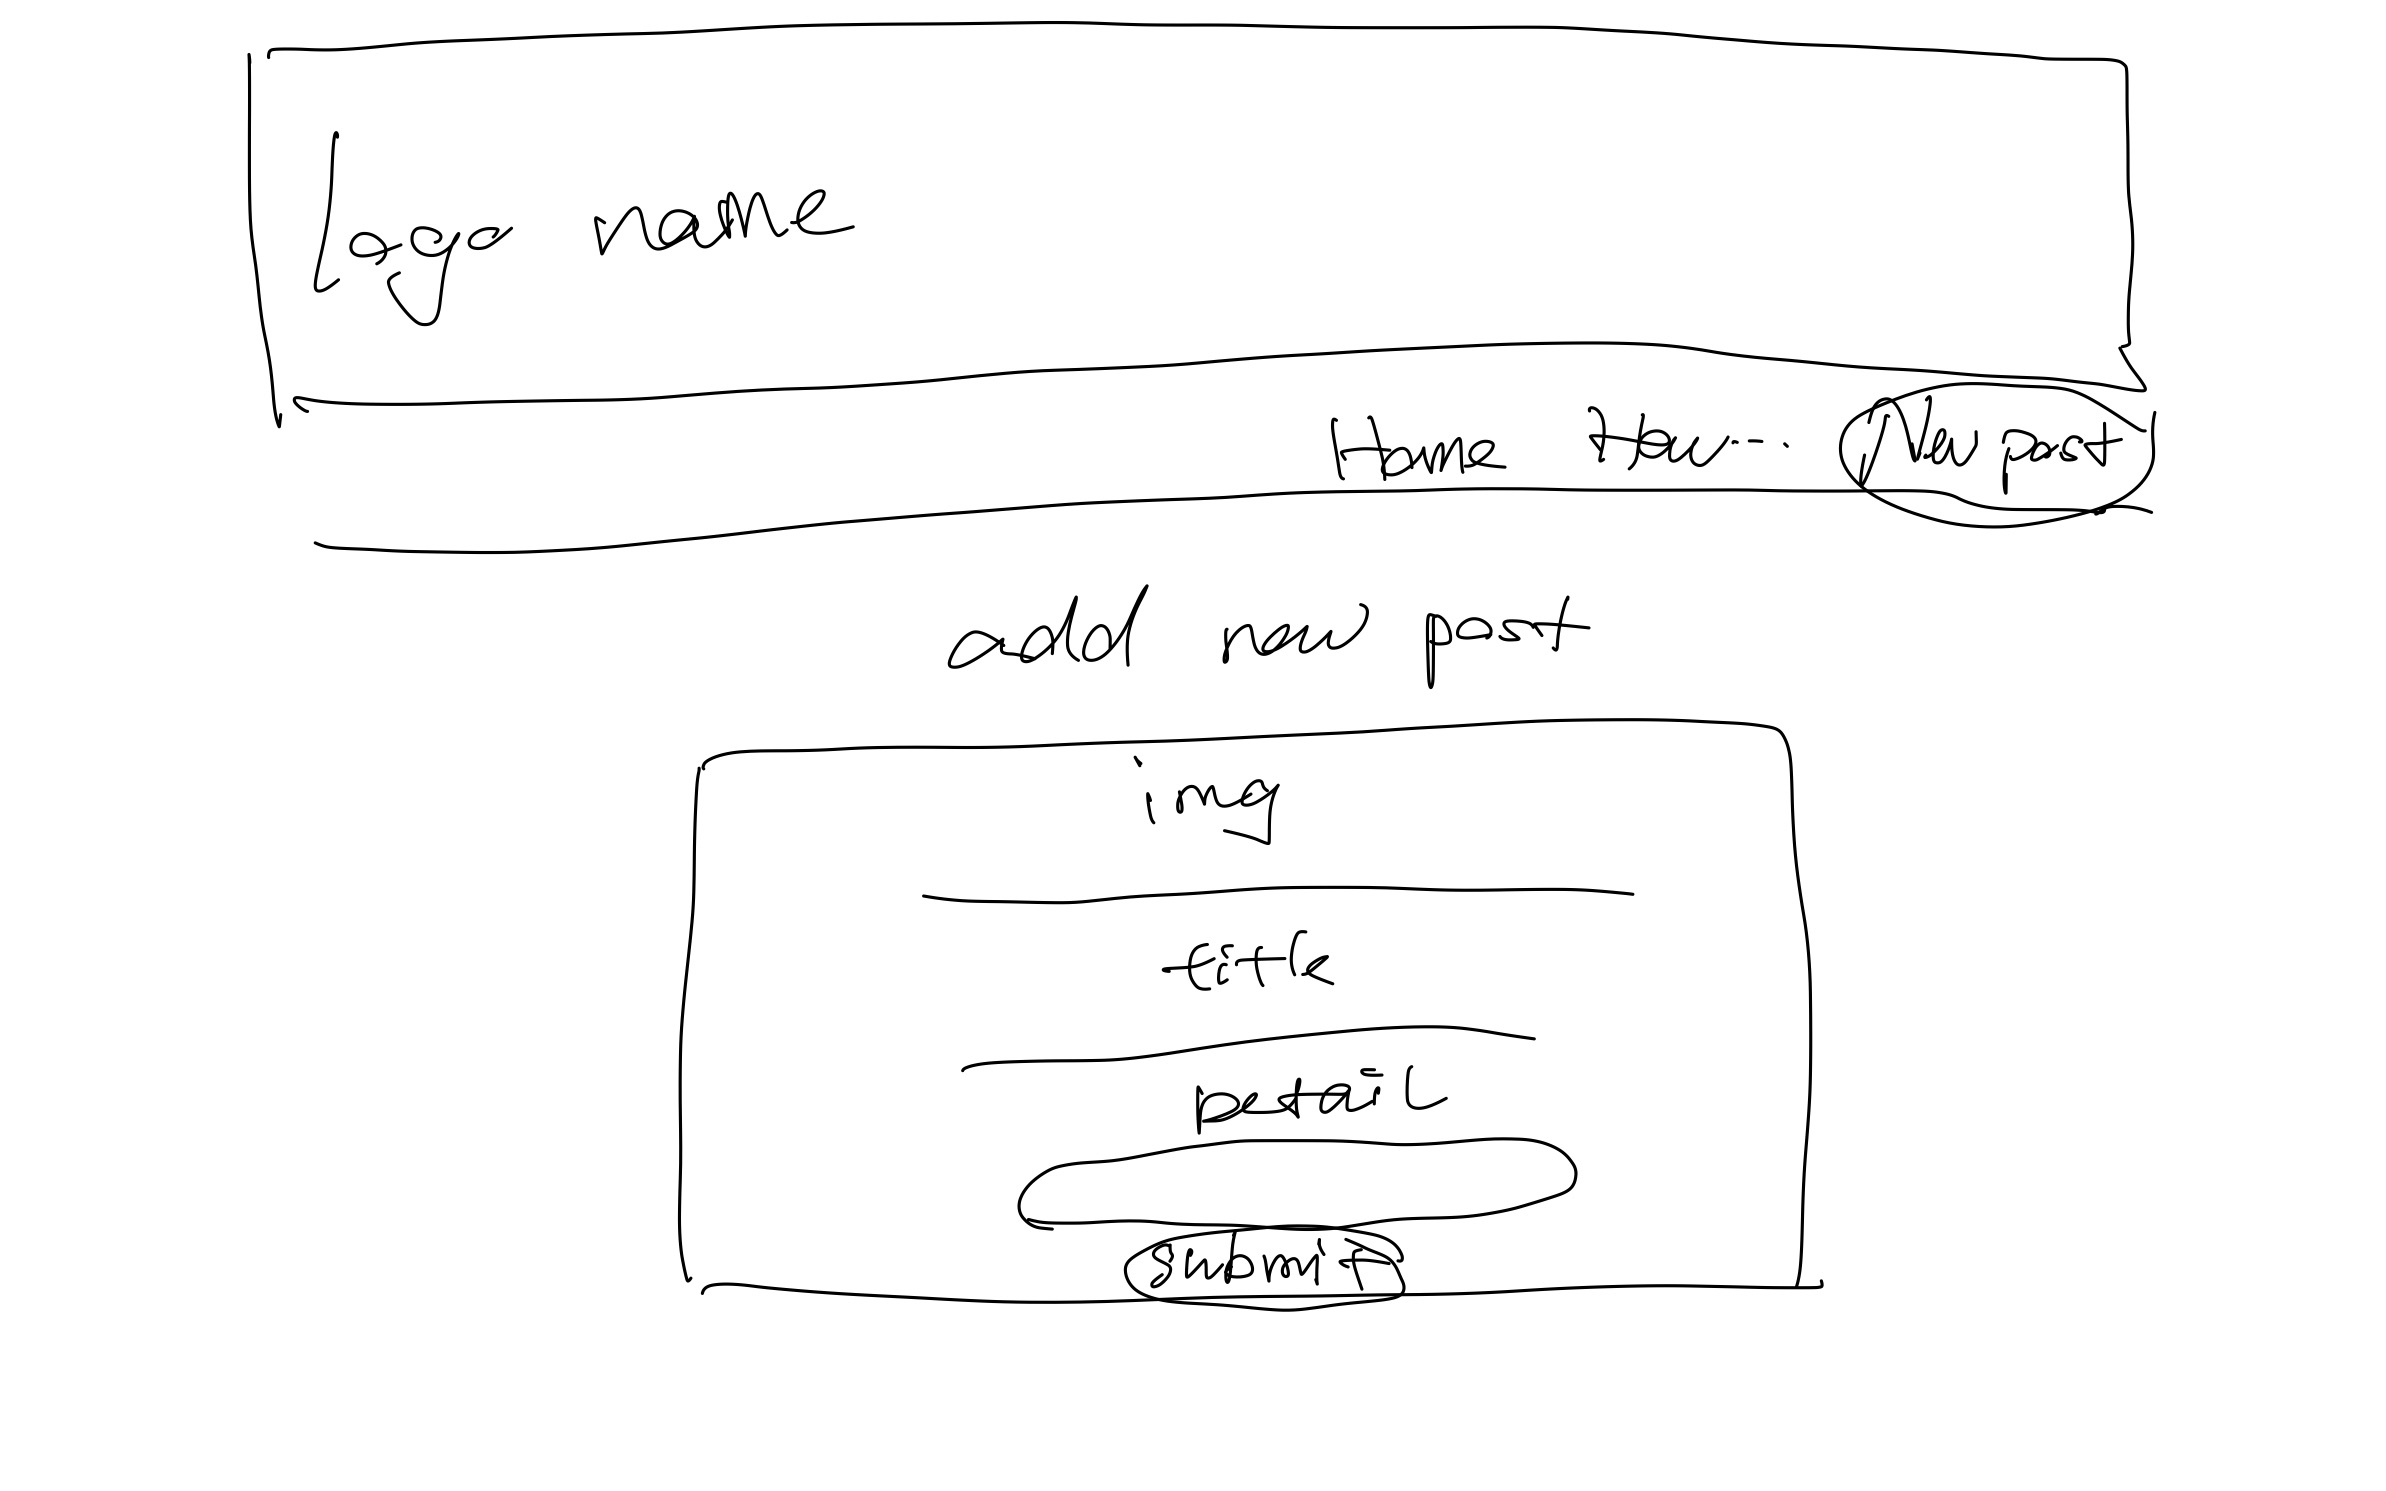 Logo name
Home
New post
add new post
img
title
Detail
submit